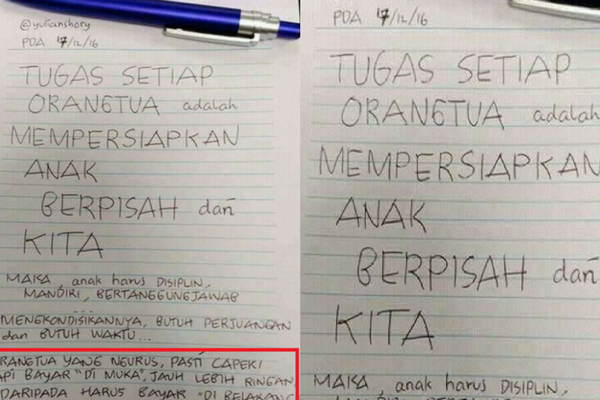 @yulianshory
PDA 17/12/16
TUGAS SETIAP
ORANGTUA adalah
MEMPERSIAPKAN
ANAK
BERPISAH dari
KITA
MAKA, anak harus DISIPLIN,
MANDIRI, BERTANGGUNGJAWAB
...
MENGKONDISIKANNYA, BUTUH PERJUANGAN
dan BUTUH WAKTU...
RANGTUA YANG NGURUS, PASTI CAPEK!
API BAYAR "DI MUKA", JAUH LEBIH RINGAN
DARIPADA HARUS BAYAR "DI BELAKANG
PDA 17/12/16
TUGAS SETIAP
ORANGTUA adalah
MEMPERSIAPKAN
ANAK
BERPISAH dari
KITA
MAKA, anak harus DISIPLIN,